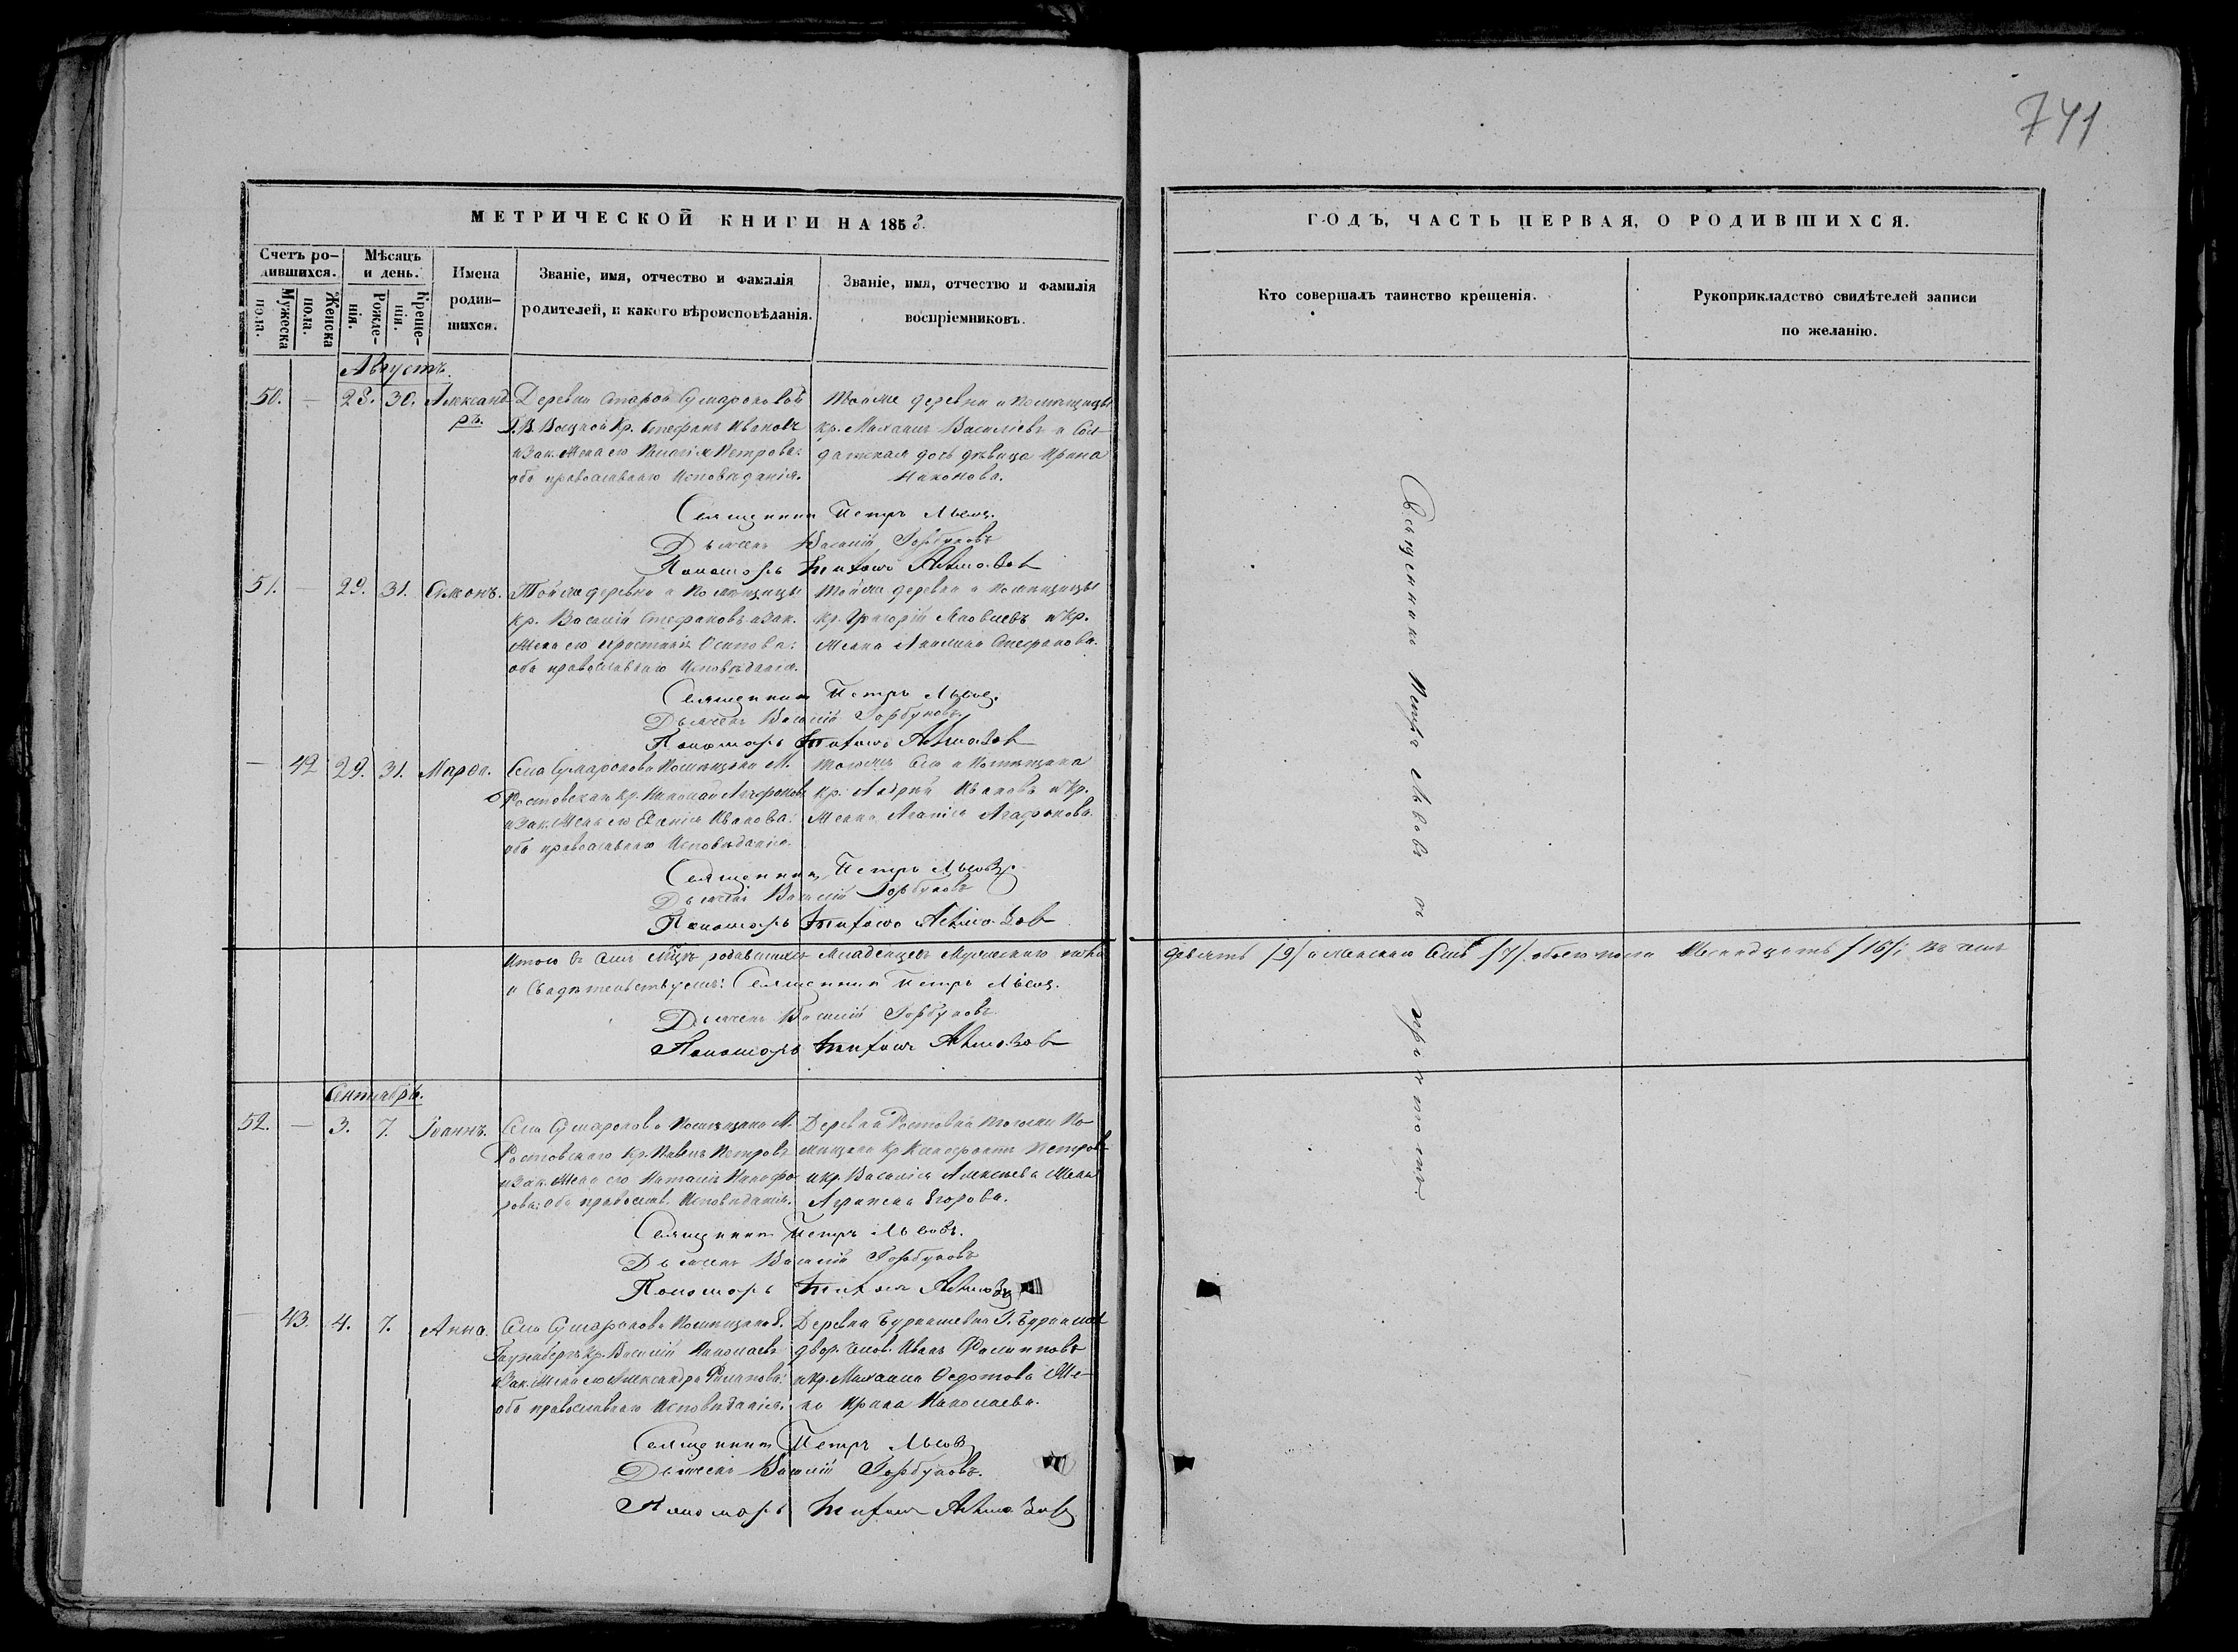 741
МЕТРИЧЕСКОЙ КНИГИ НА 1853.
Счетъ ро-
дившихся.
Мѣсяцъ
и день.
Имена
родив-
шихся.
Званіе, имя, отчество и фамилія
родителей, и какого вѣроисповѣданія.
Званіе, имя, отчество и фамилія
воспріемниковъ.
Мужеска
пола.
Женска
пола.
Рожде-
нія.
Креще-
нія.
Августъ.
50. — 28. 30. Александ
ръ.
Деревни Старой Сумароковой
Кр. Стефанъ Ивановъ
и зак. жена его Петрова:
оба православнаго исповѣданія.
Тойже деревни и помѣщицы
кр. Михаилъ Василіевъ и Сол-
датская дочь дѣвица Ирина
Никонова.
Священникъ Петръ Львовъ.
Дьячекъ Василій Горбуновъ
Пономарь
51. — 29. 31. Симонъ.
Тойже деревни и помѣщицы
кр. Василій Стефановъ и зак.
жена его Осипова:
оба православнаго исповѣданія.
Тойже деревни и помѣщицы
кр. Григорій Яковлевъ и кр.
жена Стефанова.
Священникъ Петръ Львовъ.
Дьячекъ Василій Горбуновъ.
Пономарь
— 42 29. 31. Марѳа.
Села Сумарокова помѣщика М.
Ростовскаго кр. Николай Агафоновъ
и зак. жена его Иванова:
оба православнаго исповѣданія.
Тогожъ села и помѣщика
кр. Андрей Ивановъ и кр.
жена Агафонова.
Священникъ Петръ Львовъ.
Дьячекъ Василій Горбуновъ
Пономарь
Итого въ семъ мѣсяцѣ родившихся младенцевъ мужескаго пола
и свидѣтельствуемъ: Священникъ Петръ Львовъ.
Дьячекъ Василій Горбуновъ.
Пономарь
Сентябрь.
52. — 3. 7. Іоаннъ.
Села Сумарокова помѣщика М.
Ростовскаго кр. Павелъ Петровъ
и зак. жена его Наталія Никифо
рова: оба православ. исповѣданія.
Деревни по-
мѣщика кр. Ксенофонтъ Петровъ
и кр. Василія Алексѣева жена
Агрипена Егорова.
Священникъ Петръ Львовъ.
Дьячекъ Василій Горбуновъ
Пономарь
— 43. 4. 7. Анна.
Села Сумарокова помѣщика
кр. Василій Николаевъ
и зак. жена его Александра
оба православнаго исповѣданія.
Деревни Бурнашевки Г. Бурнашева
двор. челов. Иванъ Филипповъ
и кр. Михаила Ѳедотова же-
на Ирина Николаева.
Священникъ Петръ Львовъ
Дьячекъ Василій Горбуновъ.
Пономарь
ГОДЪ, ЧАСТЬ ПЕРВАЯ, О РОДИВШИХСЯ.
Кто совершалъ таинство крещенія.
Рукоприкладство свидѣтелей записи
по желанію.
Священникъ Петръ Львовъ съ причтомъ
девять /9/ и женскаго семь /7/ обоего пола шестнадцать /16/; въ чемъ